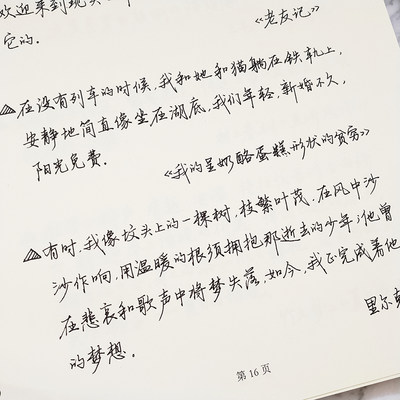 欢迎来到现实
《老友记》
它的.
在没有列车的时候,我和她和猫躺在铁轨上,
安静地简直像坐在湖底,我们年轻,新婚不久,
阳光免费.
《我的呈奶酪蛋糕形状的贫穷》
有时,我像坟头上的一棵树,枝繁叶茂,在风中沙
沙作响,用温暖的根须拥抱那逝去的少年;他曾
在悲哀和歌声中将梦失落,如今,我正完成着他
的梦想.
里尔克
第16页